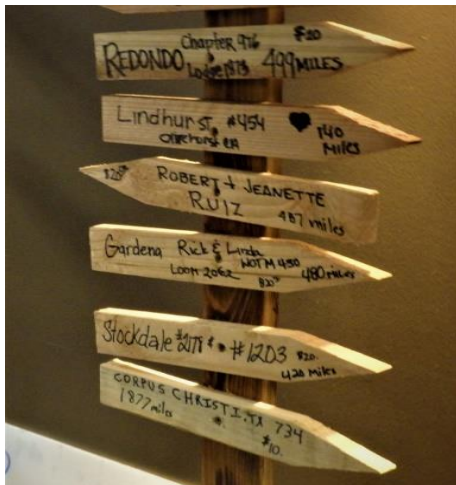 Chapter 976 $20
REDONDO Lodge 1873 499 MILES
Lindhurst #454 140
Olivehurst CA MILES
$20
ROBERT + JEANETTE
RUIZ 487 miles
Gardena Rick & Linda
WOTM 450
LOOM 2062 $20 480 miles
Stockdale #2178 & #1203 $20.
420 Miles
CORPUS CHRISTI, TX 734
1877 miles
$10.